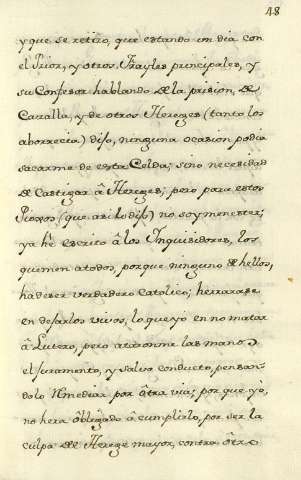 48
y que se retiro, que estando un dia con
el Prior, y otros Frayles principales, y
su Confesor hablando de la prision, de
Cazalla, y de otros Hereges (tanto los
aborrecia) dijo, ninguna ocasion podia
sacarme de esta Celda; sino necesidad
de Castigar â Hereges; pero para estos
Piojos (que asi lo dijo) no soy menester;
ya hê escrito â los Ynquisidores, los
quemen a todos, porque ninguno de hellos,
ha de ser verdadero Catolico; herrarase
en dejarlos vivos, lo que yô en no matar
â Lutero, pero ataronme las manos
el juramento, y salvo conducto, pensan-
dolo Rmediar por ôtra via; por que yô,
no hera ôbligado â cumplirlo, por ser la
culpa de Herege mayor, contra ôtro